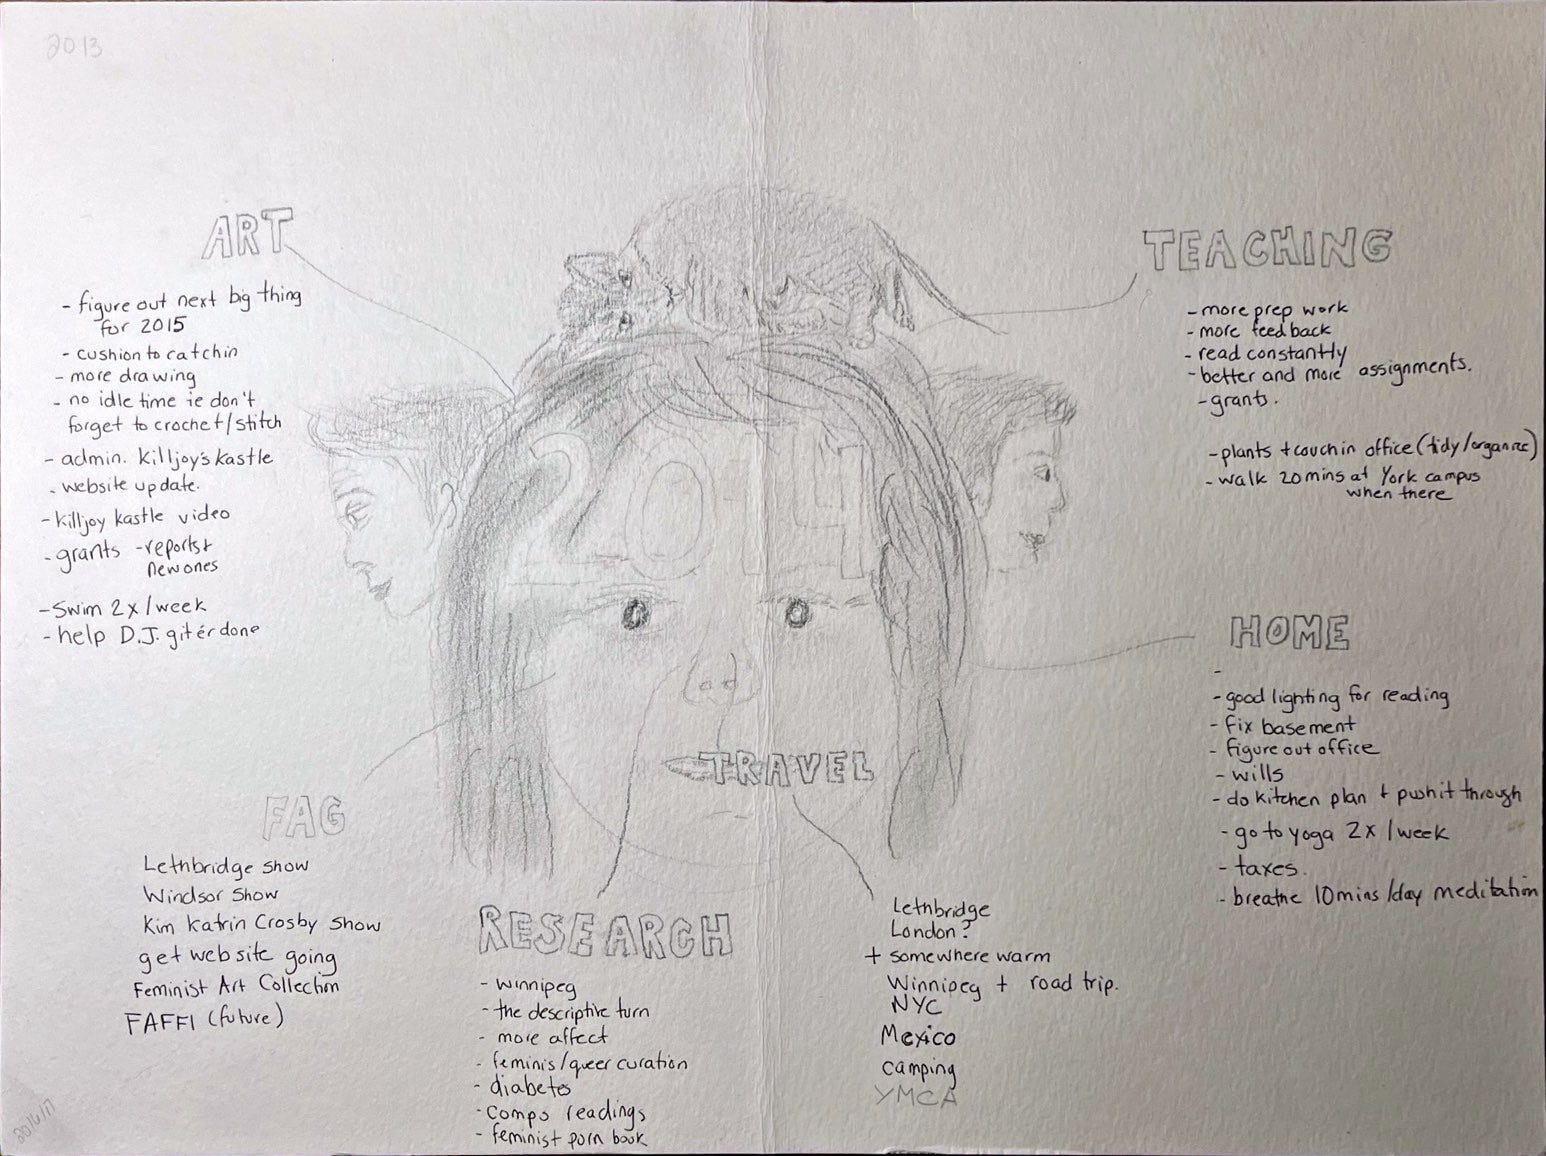 2013
ART
- figure out next big thing
for 2015
- cushion to catchin
- more drawing
- no idle time ie don't
forget to crochet/stitch
- admin. Killjoy's kastle
- website update.
- killjoy kastle video
- grants - reports +
new ones
- swim 2x/week
- help D.J. git'ér done
TEACHING
- more prep work
- more feedback
- read constantly
- better and more assignments.
- grants.
- plants + couch in office (tidy/organize)
- walk 20 mins at York campus
when there
2014
HOME
-
- good lighting for reading
- fix basement
- figure out office
- wills
- do kitchen plan + push it through
- go to yoga 2x/week
- taxes.
- breathe 10 mins/day meditation
FAG
Lethbridge show
Windsor Show
Kim Katrin Crosby Show
get website going
Feminist Art Collection
FAFFI (future)
RESEARCH
- winnipeg
- the descriptive turn
- more affect
- feminis/queer curation
- diabetes
- comps readings
- feminist porn book
TRAVEL
Lethbridge
London?
+ somewhere warm
Winnipeg + road trip.
NYC
Mexico
camping
YMCA